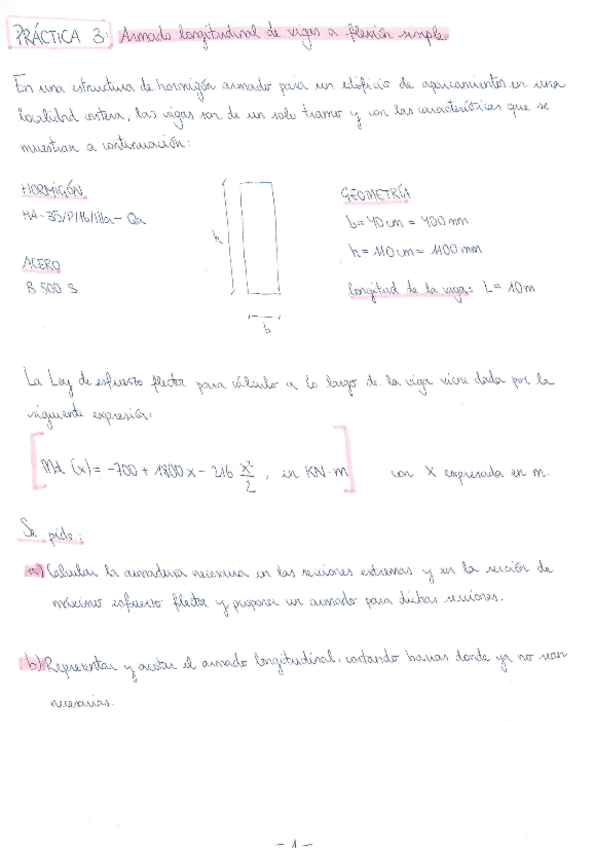 PRÁCTICA 3: Armado longitudinal de vigas a flexión simple
En una estructura de hormigón armado para un edificio de aparcamientos en una
localidad costera, las vigas son de un solo tramo y con las características que se
muestran a continuación:
HORMIGÓN
HA-35/P/16/IIIa- Qa
ACERO
B 500 S
h
b
GEOMETRÍA
b= 40 cm = 400 mm
h= 110 cm = 1100 mm
longitud de la viga: L= 10 m
La Ley de esfuerzo flector para cálculo a lo largo de la viga viene dada por la
siguiente expresión:
Md (x)= -700 + 1800 x - 216 x²/2 , en KN·m con X expresada en m.
Se pide:
a) Calcular la armadura necesaria en las secciones extremas y en la sección de
máximo esfuerzo flector y proponer un armado para dichas secciones.
b) Representar y acotar el armado longitudinal, cortando barras donde ya no sean
necesarias.
- 1 -